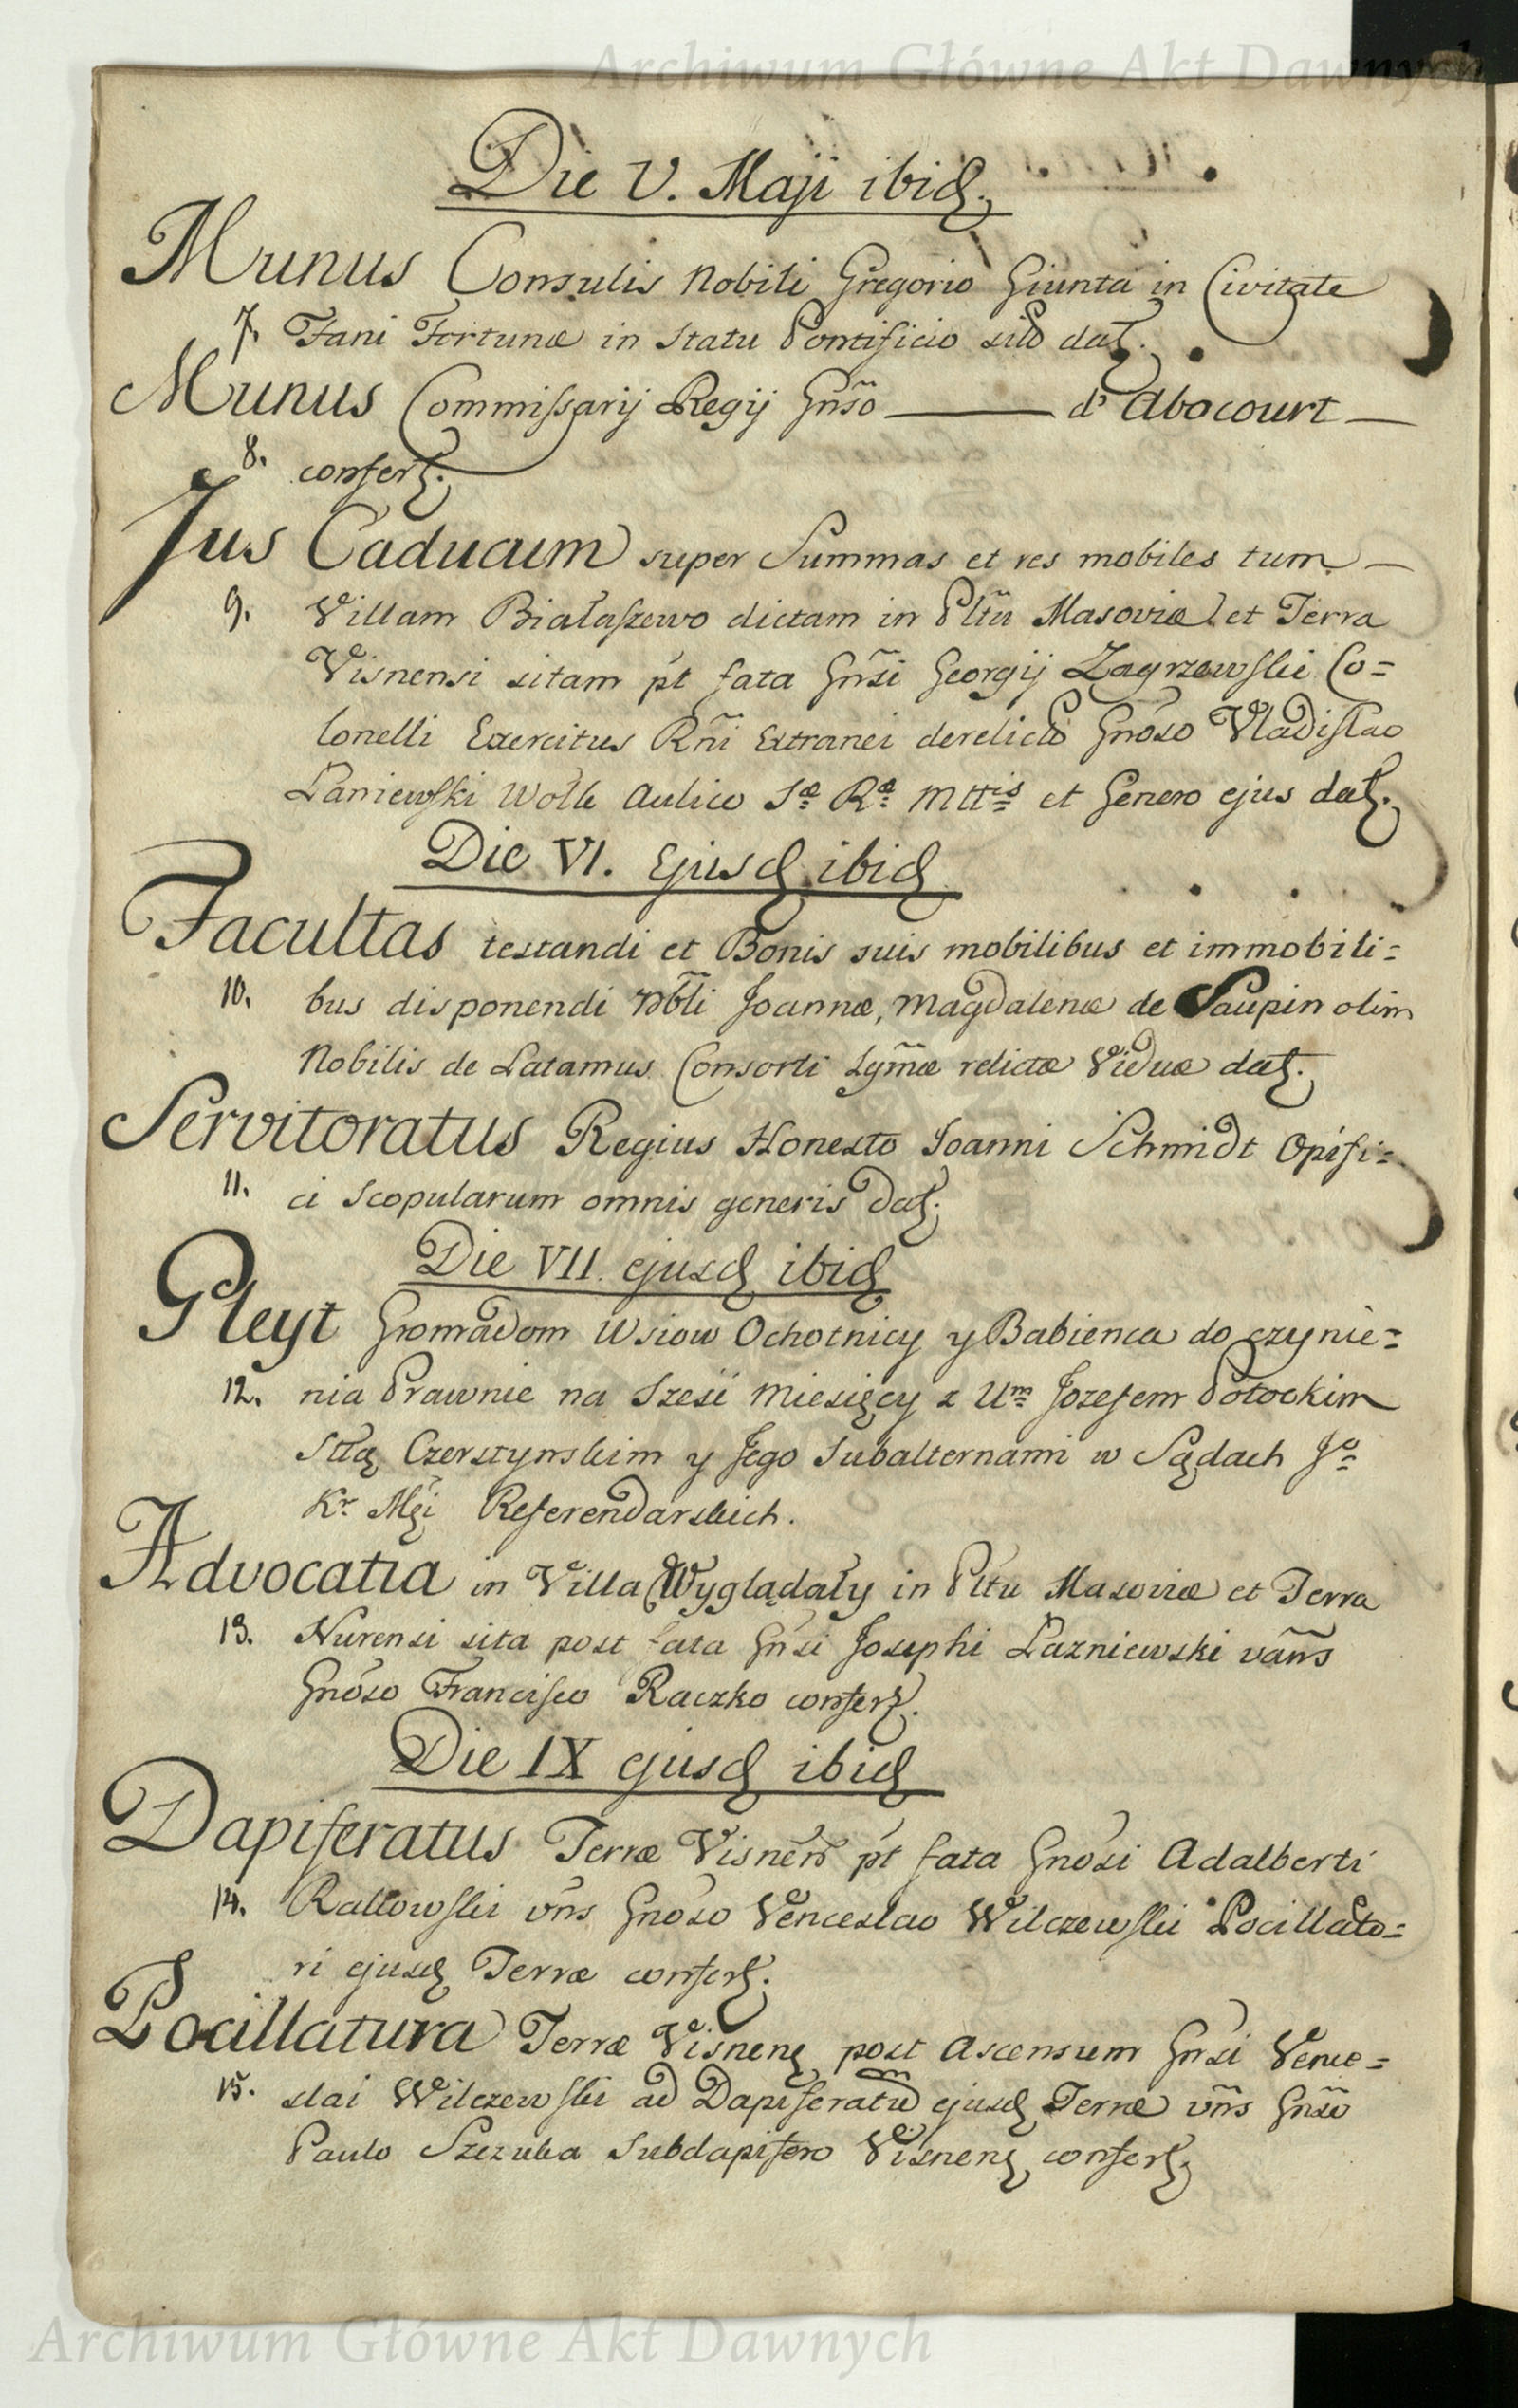 Archiwum Główne Akt Dawnych
Die V. Maji ibid.
Munus Consulis Nobili Gregorio Giunta in Civitate
7. Fani Fortunæ in Statu Pontificio dat.
Munus Commissarij Regij Gñso — d'Abocourt —
8. confert.
Jus Caducum super Summas et res mobiles tum —
9. Villam Białaszewo dictam in Pltũ Masoviæ et Terra
Visnensi sitam pt fata Gñsi Georgij Zagrzewski Co=
lonelli Exercitus Rñi Extranei derelicto Gnoso Vladislao
Łaniewski Wolk Aulico Sæ Ræ Mttis et Genero ejus dat.
Die VI. Ejusd ibid
Facultas testandi et Bonis suis mobilibus et immobili=
10. bus disponendi Nbli Joannæ, Magdalenæ de Saupin olim
Nobilis de Latamus Consorti Lgmæ relictæ Viduæ dat.
Servitoratus Regius Honesto Joanni Schmidt Opifi=
11. ci Scopularum omnis generis dat.
Die VII. ejusd ibid
Gleyt Gromadom Wsiow Ochotnicy y Babienca do czynie=
12. nia Prawnie na Sześć Miesięcy z Um Jozefem Potockim
Sttą Czorsztynskim y Jego Subalternami w Sądach Jo
Kr. Mci Referendarskich.
Advocatia in Villa Wyglądały in Pltu Masoviæ et Terra
13. Nurensi sita post fata Gñsi Josephi Łazniewski vañs
Gnoso Francisco Raczko confert.
Die IX ejusd ibid
Dapiferatus Terræ Visnen pt fata Gnosi Adalberti
14. Rakowski vñs Gnoso Venceslao Wilczewski Pocillato=
ri ejusd Terræ confert.
Pocillatura Terræ Visnen post Ascensum Gñsi Vence=
15. slai Wilczewski ad Dapiferatũ ejusd Terræ vñs Gñso
Paulo Szczuka Subdapifero Visnen confert.
Archiwum Główne Akt Dawnych